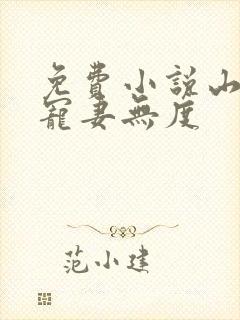 免費小說山
寵妻無度
范小建